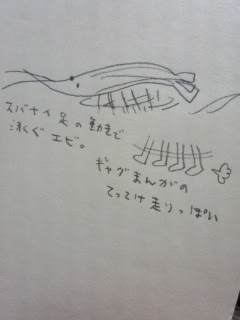 スバヤイ足の動きで
泳ぐエビ。
ギャグまんがの
てってけ走りっぽい